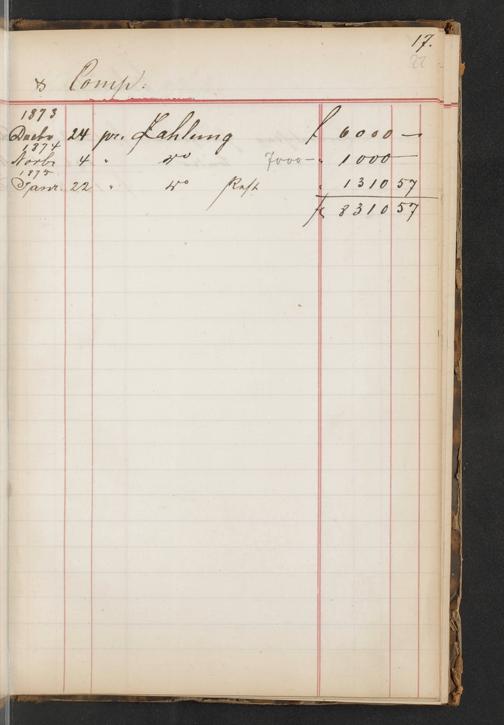 17.
22
& Comp.
1873
Decbr 24 pr. Zahlung f 6000 —
1874
Novbr 4 " do 7000 — " 1000 —
1875
Janr. 22 " do Rest " 1310 57
f 8310 57